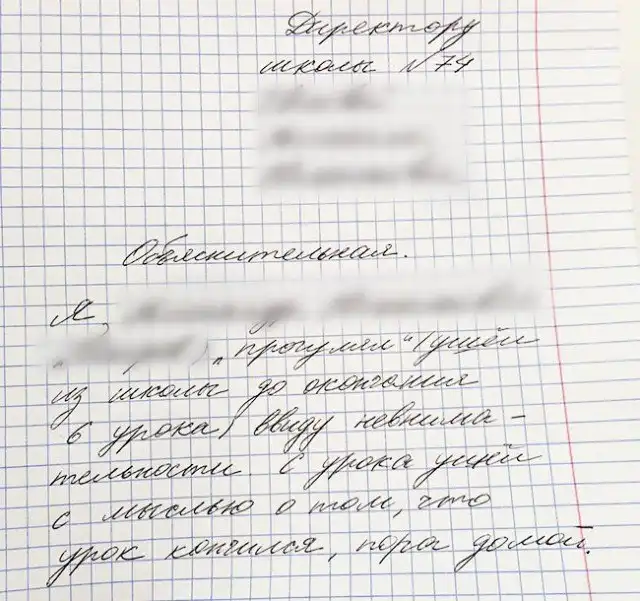 Директору
школы №74
Объяснительная.
Я,
„прогулял“ (ушёл
из школы до окончания
6 урока) ввиду невнима-
тельности. С урока ушёл
с мыслью о том, что
урок кончился, пора домой.